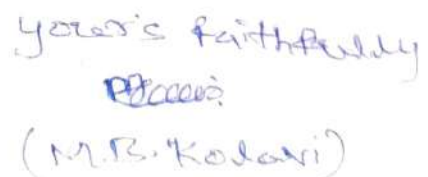 your's faithfully
(M.B. Kolavi)